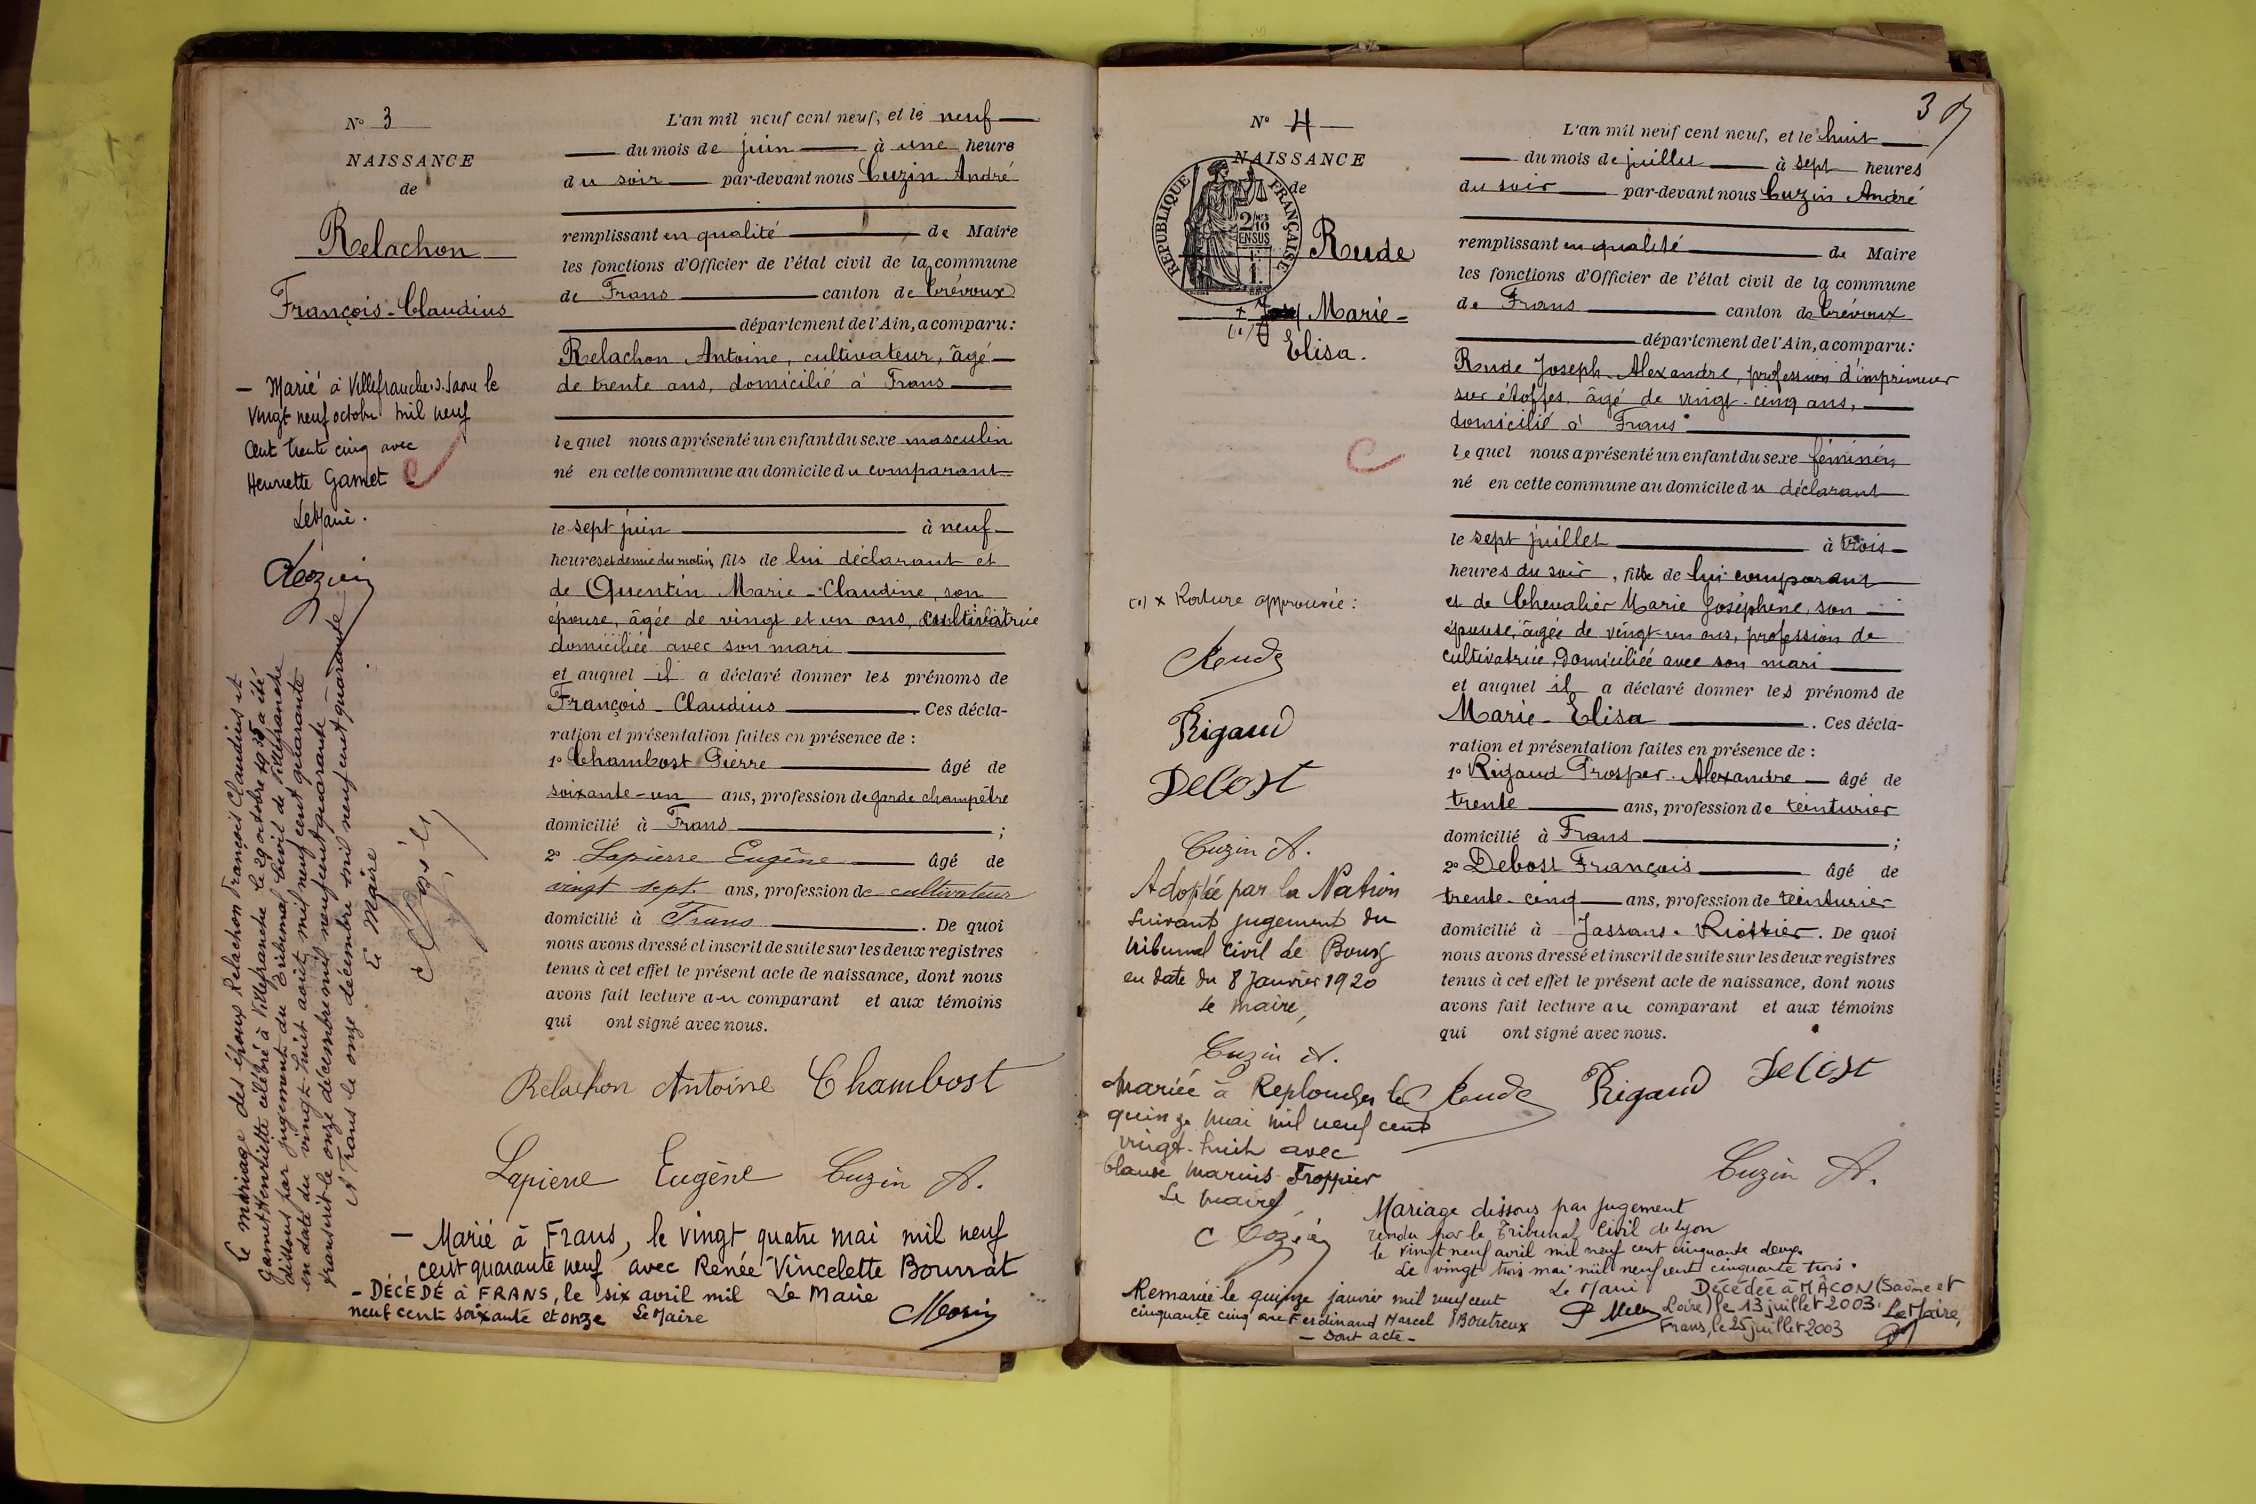 N° 3
NAISSANCE
de
Relachon
François-Claudius
— Marié à Villefranche s. Saone le
vingt neuf octobre mil neuf
cent trente cinq avec
Henriette Gamet
Le Maire.
Le mariage des époux Relachon François Claudius et
Gamet Henriette célébré à Villefranche le 29 octobre 1935 a été
dissous par jugement du Tribunal Civil de Villefranche
en date du vingt-huit août mil neuf cent quarante
transcrit le onze décembre mil neuf cent quarante
A Frans le onze décembre mil neuf cent quarante
Le Maire
L'an mil neuf cent neuf, et le neuf
du mois de juin à une heure
du soir par-devant nous Cuzin André
remplissant en qualité de Maire
les fonctions d'Officier de l'état civil de la commune
de Frans canton de Trévoux
département de l'Ain, a comparu:
Relachon Antoine, cultivateur, âgé
de trente ans, domicilié à Frans
lequel nous a présenté un enfant du sexe masculin
né en cette commune au domicile du comparant
le sept juin à neuf
heures et demie du matin, fils de lui déclarant et
de Quentin Marie-Claudine, son
épouse, âgée de vingt et un ans, cultivatrice
domiciliée avec son mari
et auquel il a déclaré donner les prénoms de
François-Claudius. Ces décla-
ration et présentation faites en présence de :
1° Chambost Pierre âgé de
soixante-un ans, profession de garde champêtre
domicilié à Frans ;
2° Lapierre Eugène âgé de
vingt sept ans, profession de cultivateur
domicilié à Frans. De quoi
nous avons dressé et inscrit de suite sur les deux registres
tenus à cet effet le présent acte de naissance, dont nous
avons fait lecture au comparant et aux témoins
qui ont signé avec nous.
Relachon Antoine Chambost
Lapierre Eugène Cuzin A.
— Marié à Frans, le vingt quatre mai mil neuf
cent quarante neuf avec Renée Vincelette Bourrat
Le Maire
- DÉCÉDÉ à FRANS, le six avril mil
neuf cent soixante et onze Le Maire
N° 4
NAISSANCE
de
RÉPUBLIQUE FRANÇAISE
2/10
EN SUS
Rude
Marie-
Elisa.
(1) x Rature approuvée :
Rude
Rigaud
Debost
Cuzin A.
Adoptée par la Nation
suivant jugement du
tribunal civil de Bourg
en date du 8 Janvier 1920
le maire,
Cuzin A.
Mariée à Replonges le
quinze mai mil neuf cent
vingt-huit avec
Claude Marius Froppier
Le Maire
37
L'an mil neuf cent neuf, et le huit
du mois de juillet à sept heures
du soir par-devant nous Cuzin André
remplissant en qualité de Maire
les fonctions d'Officier de l'état civil de la commune
de Frans canton de Trévoux
département de l'Ain, a comparu:
Rude Joseph-Alexandre, profession d'imprimeur
sur étoffes, âgé de vingt-cinq ans,
domicilié à Frans
lequel nous a présenté un enfant du sexe féminin,
né en cette commune au domicile du déclarant
le sept juillet à trois
heures du soir, fille de lui comparant
et de Chevalier Marie Joséphine, son
épouse, âgée de vingt-un ans, profession de
cultivatrice, domiciliée avec son mari
et auquel il a déclaré donner les prénoms de
Marie-Elisa. Ces décla-
ration et présentation faites en présence de :
1° Rigaud Prosper-Alexandre âgé de
trente ans, profession de teinturier
domicilié à Frans ;
2° Debost François âgé de
trente-cinq ans, profession de teinturier
domicilié à Jassans-Riottier. De quoi
nous avons dressé et inscrit de suite sur les deux registres
tenus à cet effet le présent acte de naissance, dont nous
avons fait lecture au comparant et aux témoins
qui ont signé avec nous.
Rude Rigaud Debost
Cuzin A.
Mariage dissous par jugement
rendu par le Tribunal Civil de Lyon
le vingt neuf avril mil neuf cent cinquante deux.
Le vingt trois mai mil neuf cent cinquante trois.
Le Maire
Remariée le quinze janvier mil neuf cent
cinquante cinq avec Ferdinand Marcel Boutreux
— Dont acte —
Décédée à MÂCON (Saône et
Loire) le 13 juillet 2003.
Frans, le 25 juillet 2003
Le Maire,